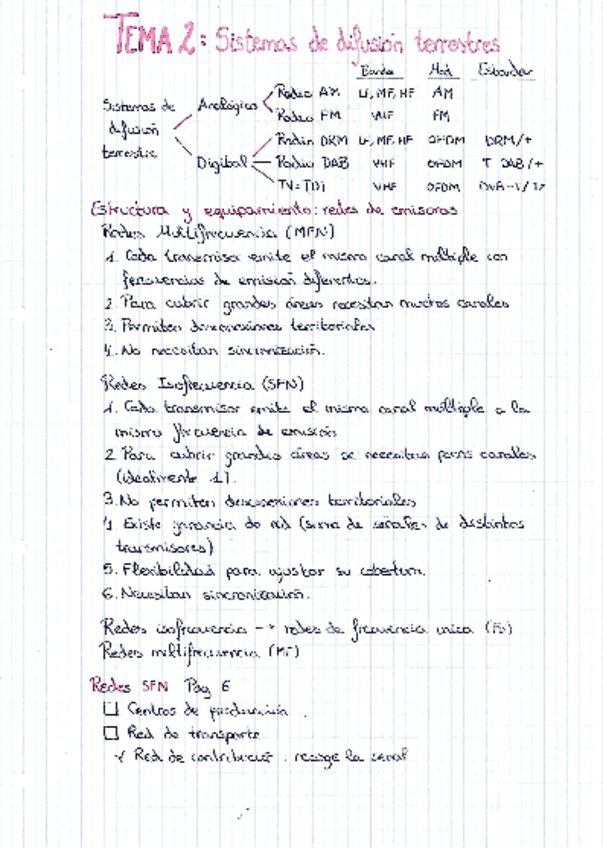 TEMA 2: Sistemas de difusión terrestres
Banda Mod Estandar
Sistemas de difusión terrestre
Analógico
Radio AM LF, MF, HF AM
Radio FM VHF FM
Digital
Radio DRM LF, MF, HF OFDM DRM/+
Radio DAB VHF OFDM T DAB/+
TV = TDT VHF OFDM
Estructura y equipamiento: redes de emisoras
Redes Multifrecuencia (MFN)
1. Cada transmisor emite el mismo canal múltiple con
frecuencias de emisión diferentes.
2. Para cubrir grandes áreas necesitan muchos canales
3. Permiten desconexiones territoriales
4. No necesitan sincronización.
Redes Isofrecuencia (SFN)
1. Cada transmisor emite el mismo canal múltiple a la
misma frecuencia de emisión
2 Para cubrir grandes áreas se necesitan pocos canales
(idealmente 1).
3. No permiten desconexiones territoriales
4. Existe ganancia de red (suma de señales de distintos
transmisores)
5. Flexibilidad para ajustar su cobertura.
6. Necesitan sincronización.
Redes isofrecuencia → redes de frecuencia unica
Redes multifrecuencia (MF)
Redes SFN Pag 6
Centros de producción.
Red de transporte
Red de contribución: recoge la señal